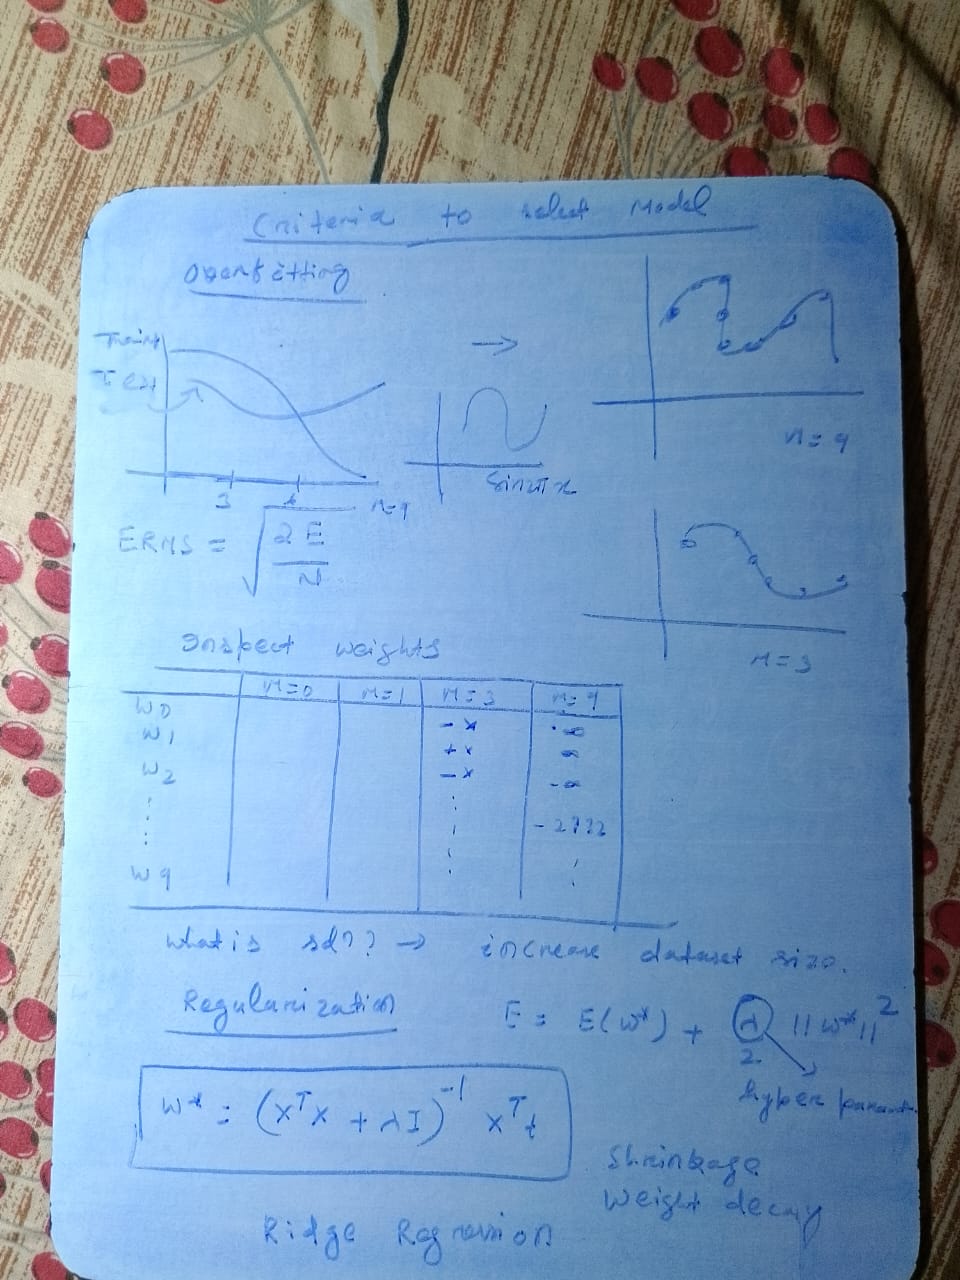 Criteria to select Model
Overfitting
Train
Test
3
M=9
sin2πx
M=9
ERMS = √(2E/N)
M=3
Inspect weights
M=0 M=1 M=3 M=9
W0
W1 -x
W2 +x
-x
-2772
W9
What is sol?? → increase dataset size.
Regularization
E = E(w*) + λ/2 ||w*||²
hyper
w* = (XᵀX + λI)⁻¹ Xᵀt
Shrinkage
Weight decay
Ridge Regression